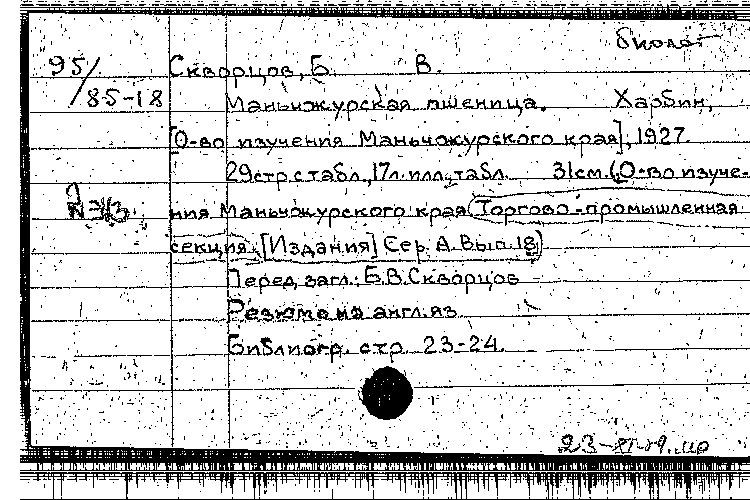 биолог
95/
Скворцов, Б. В.
85-18
Маньчжурская пшеница. Харбин,
[О-во изучения Маньчжурского края], 1927.
29 стр. с табл., 17 л. илл., табл. 31 см. (О-во изуче-
ния Маньчжурского края (Торгово-промышленная
секция. [Издания] Сер. А. Вып. 18)
Перед загл.: Б.В. Скворцов
Резюме на англ. яз.
Библиогр. стр. 23-24.